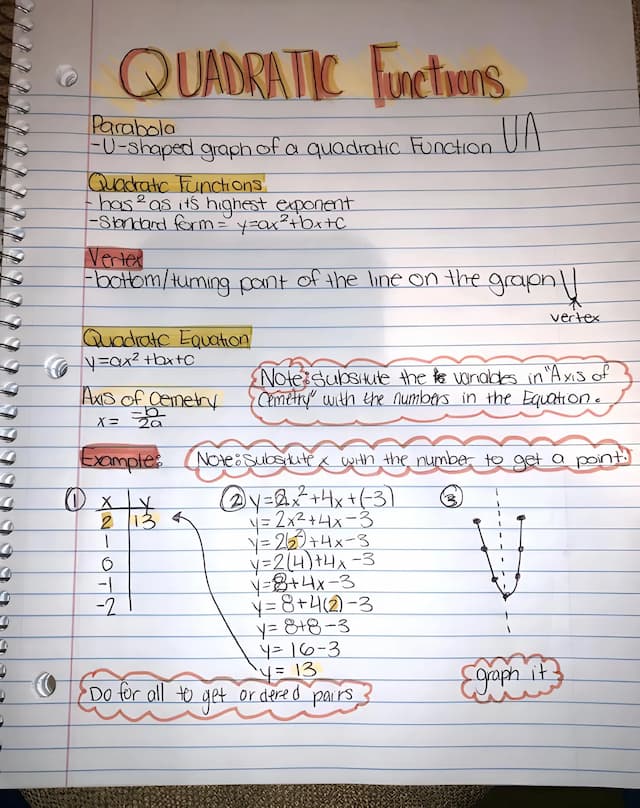 QUADRATIC Functions
Parabola
-U-shaped graph of a quadratic Function
Quadratic Functions
- has 2 as its highest exponent
-Standard form = y=ax²+bx+c
Vertex
-bottom/turning point of the line on the graph
vertex
Quadratic Equation
y=ax²+bx+c
Note: Substitute the variables in "Axis of
Cemetry" with the numbers in the Equation.
Axis of Cemetry
x = -b/2a
Example:
Note: Substitute x with the number to get a point.
① x y
2 13
1
0
-1
-2
② y=2x²+4x+(-3)
y=2x²+4x-3
y=2(2²)+4x-3
y=2(4)+4x-3
y=8+4x-3
y=8+4(2)-3
y=8+8-3
y=16-3
y=13
③
graph it
Do for all to get ordered pairs